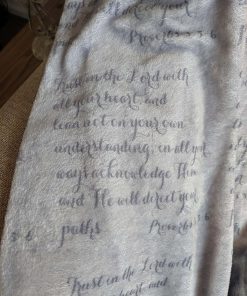 ways acknowledge Him
and He will direct your
paths. Proverbs 3:5-6
Trust in the Lord with
all your heart, and
lean not on your own
understanding; in all your
ways acknowledge Him
and He will direct your
paths. Proverbs 3:5-6
Trust in the Lord with
heart and